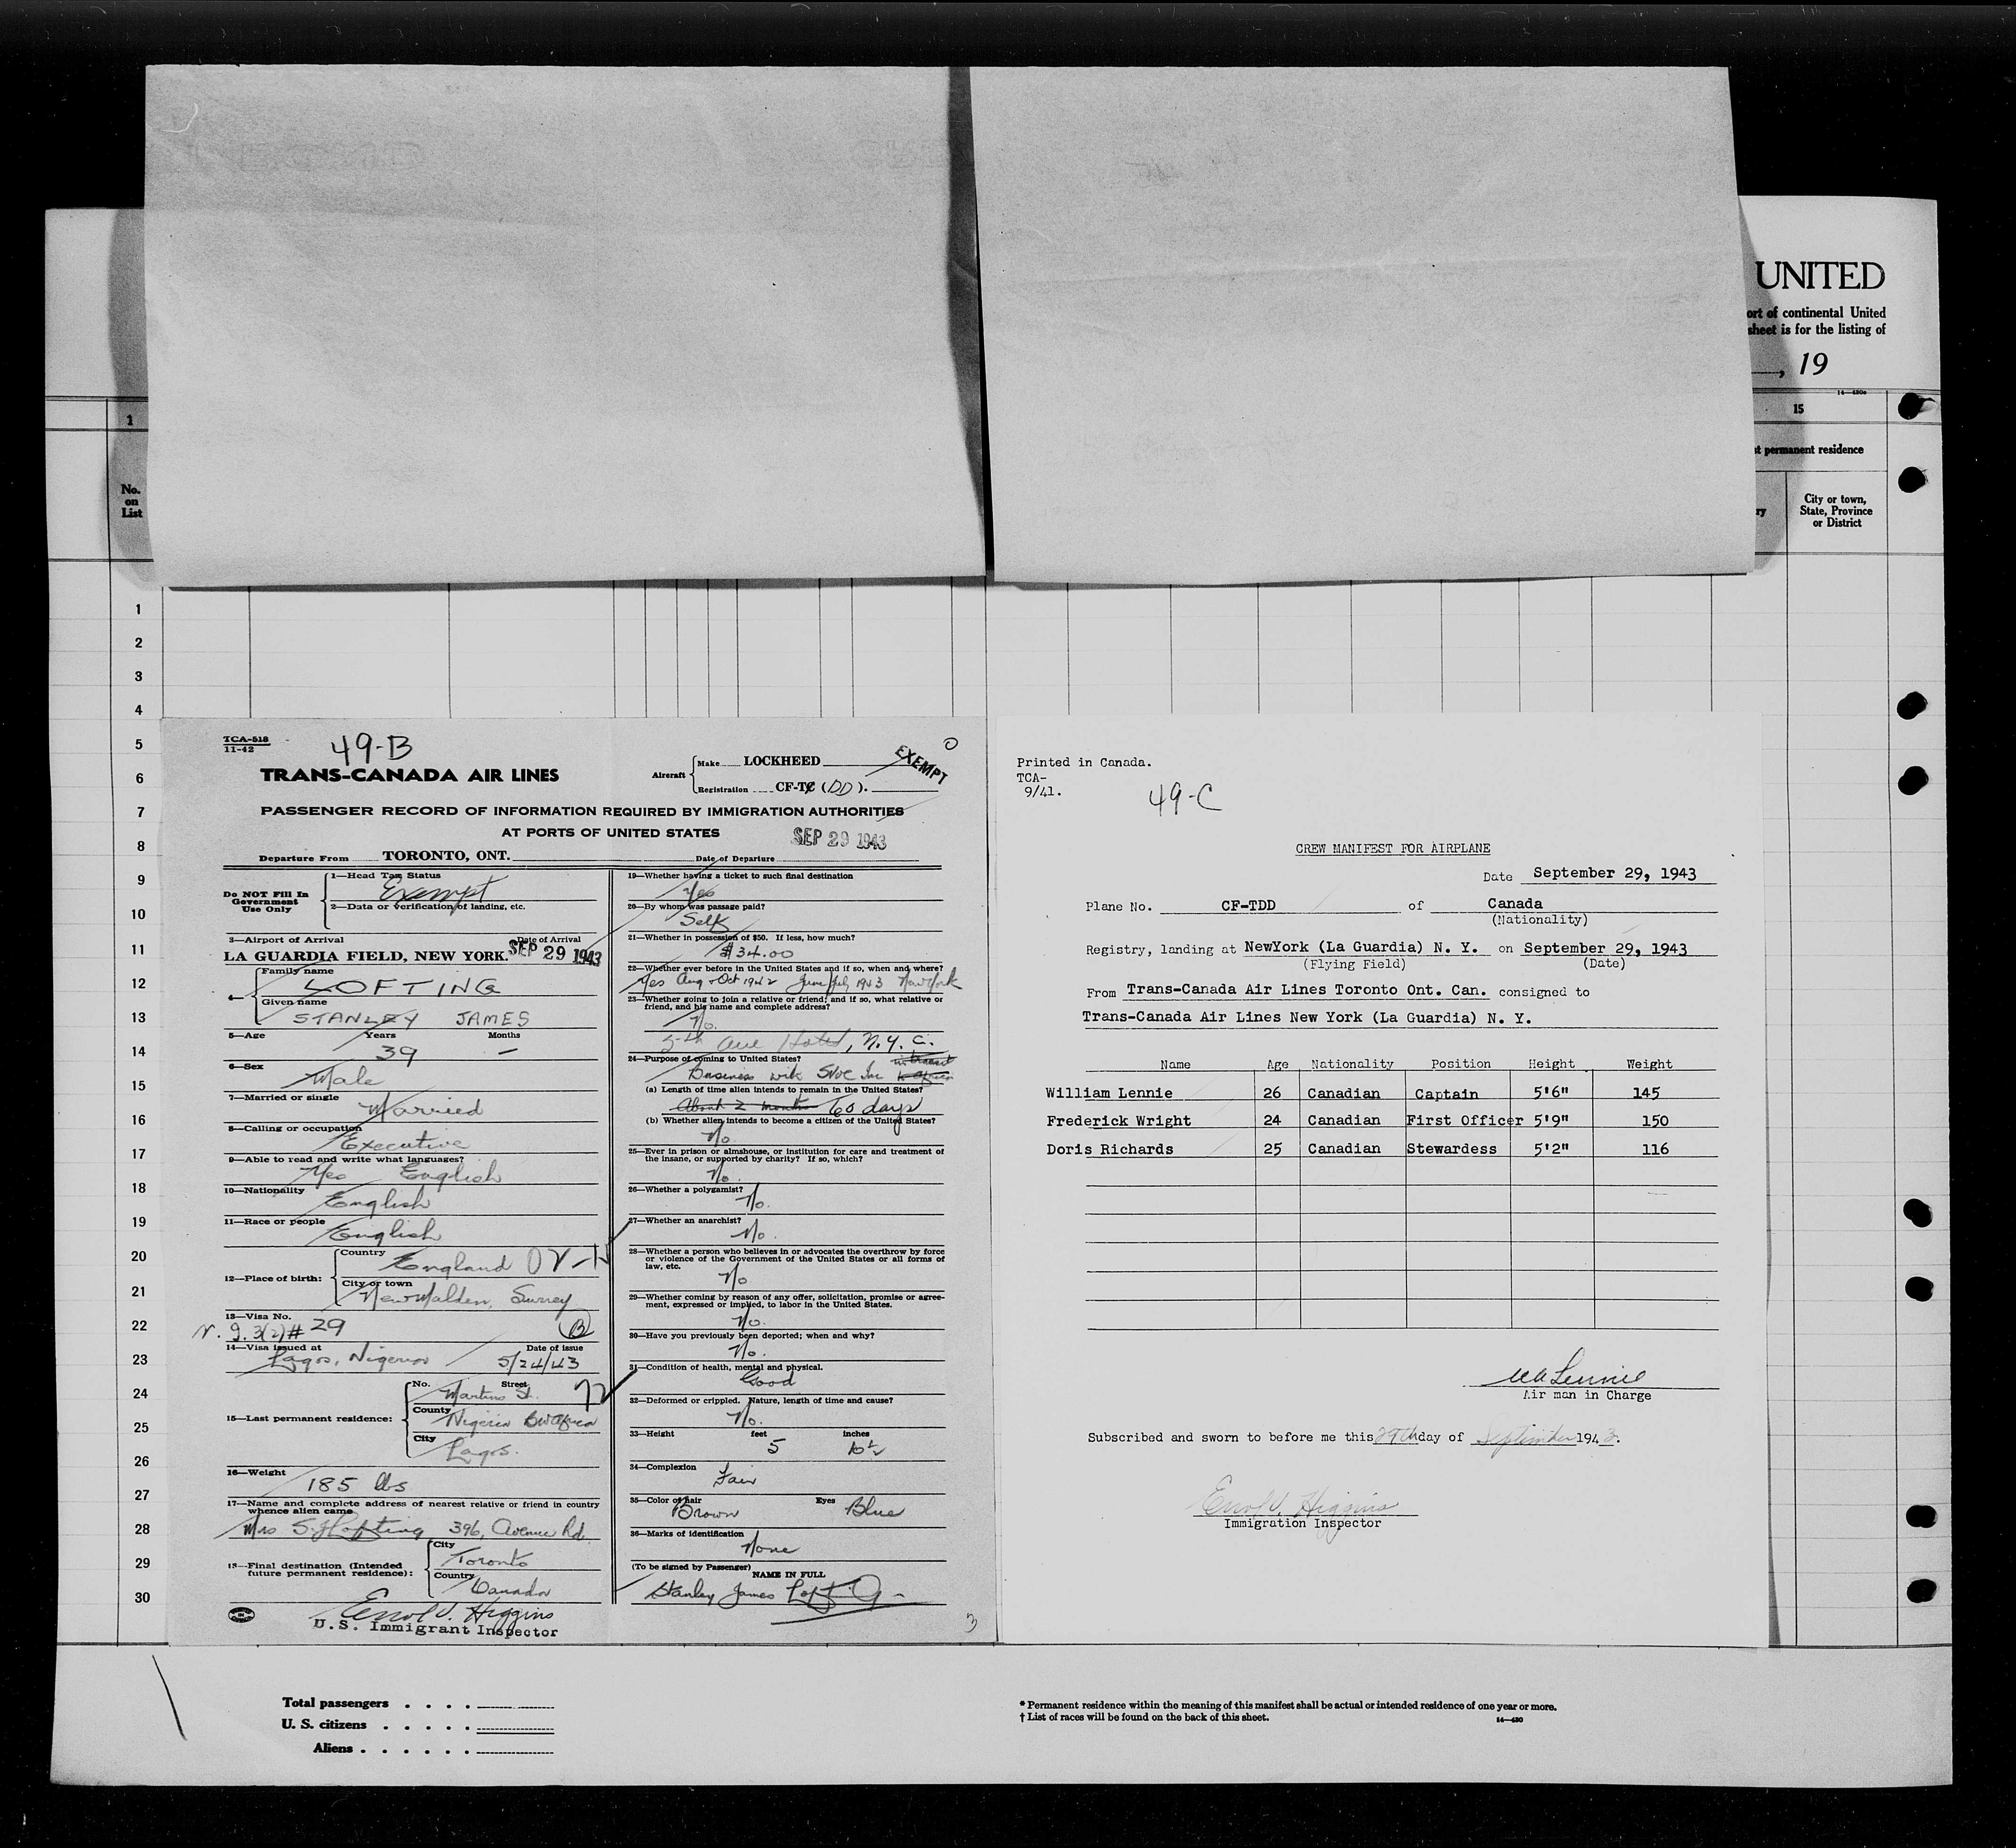 UNITED
ort of continental United
sheet is for the listing of
, 19
14—430c
1
15
t permanent residence
No.
on
List
ry
City or town,
State, Province
or District
1
2
3
4
5
6
7
8
9
10
11
12
13
14
15
16
17
18
19
20
21
22
23
24
25
26
27
28
29
30
TCA-518
11-42
49-B
TRANS-CANADA AIR LINES
Aircraft
Make LOCKHEED
Registration CF-TC (DD).
EXEMPT
PASSENGER RECORD OF INFORMATION REQUIRED BY IMMIGRATION AUTHORITIES
AT PORTS OF UNITED STATES
SEP 29 1943
Departure From TORONTO, ONT. Date of Departure
Do NOT Fill In
Government
Use Only
1—Head Tax Status
Exempt
2—Data or verification of landing, etc.
3—Airport of Arrival Date of Arrival
LA GUARDIA FIELD, NEW YORK. SEP 29 1943
4—
Family name
LOFTING
Given name
STANLEY JAMES
5—Age Years Months
39 —
6—Sex
Male
7—Married or single
Married
8—Calling or occupation
Executive
9—Able to read and write what languages?
Yes English
10—Nationality
English
11—Race or people
English
12—Place of birth:
Country
England OV-
City or town
New Malden, Surrey
13—Visa No.
3(2) # 29 B
14—Visa issued at Date of issue
Lagos, Nigeria 5/24/43
15—Last permanent residence:
No. Street
Martins St. 72
County
Nigeria BW Africa
City
Lagos.
16—Weight
185 lbs
17—Name and complete address of nearest relative or friend in country
whence alien came
Mrs S. J. Lofting 396, Avenue Rd.
18—Final destination (Intended
future permanent residence):
City
Toronto
Country
Canada
Errol V. Higgins
U.S. Immigrant Inspector
19—Whether having a ticket to such final destination
Yes
20—By whom was passage paid?
Self
21—Whether in possession of $50. If less, how much?
$34.00
22—Whether ever before in the United States and if so, when and where?
Yes Aug-Oct 1942 June/July 1943 New York
23—Whether going to join a relative or friend; and if so, what relative or
friend, and his name and complete address?
No.
5th Ave Hotel, N.Y.C.
24—Purpose of coming to United States?
Business with Inc in transit
to Africa
(a) Length of time alien intends to remain in the United States?
About 2 months 60 days
(b) Whether alien intends to become a citizen of the United States?
No
25—Ever in prison or almshouse, or institution for care and treatment of
the insane, or supported by charity? If so, which?
No.
26—Whether a polygamist?
No.
27—Whether an anarchist?
No.
28—Whether a person who believes in or advocates the overthrow by force
or violence of the Government of the United States or all forms of
law, etc.
No
29—Whether coming by reason of any offer, solicitation, promise or agree-
ment, expressed or implied, to labor in the United States.
No.
30—Have you previously been deported; when and why?
No.
31—Condition of health, mental and physical.
Good
32—Deformed or crippled. Nature, length of time and cause?
No.
33—Height feet inches
5
34—Complexion
Fair
35—Color of hair Eyes
Brown Blue
36—Marks of identification
None
(To be signed by Passenger)
NAME IN FULL
Stanley James Lofting
3
Printed in Canada.
TCA-
9/41.
49-C
CREW MANIFEST FOR AIRPLANE
Date September 29, 1943
Plane No. CF-TDD of Canada
(Nationality)
Registry, landing at NewYork (La Guardia) N. Y. on September 29, 1943
(Flying Field) (Date)
From Trans-Canada Air Lines Toronto Ont. Can. consigned to
Trans-Canada Air Lines New York (La Guardia) N. Y.
Name Age Nationality Position Height Weight
William Lennie 26 Canadian Captain 5'6" 145
Frederick Wright 24 Canadian First Officer 5'9" 150
Doris Richards 25 Canadian Stewardess 5'2" 116
Lennie
Air man in Charge
Subscribed and sworn to before me this 29th day of September 1943.
Errol V. Higgins
Immigration Inspector
Total passengers . . . .
U. S. citizens . . . . .
Aliens . . . . . .
* Permanent residence within the meaning of this manifest shall be actual or intended residence of one year or more.
† List of races will be found on the back of this sheet.
14—430